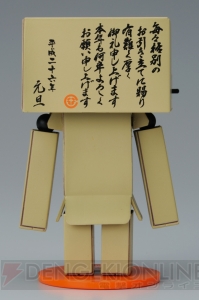 毎々格別の
お引き立てに賜り
有難く厚く
御礼申し上げます
本年も何卒よろしく
お願い申し上げます
平成二十六年
元旦
DENGEKIONLINE